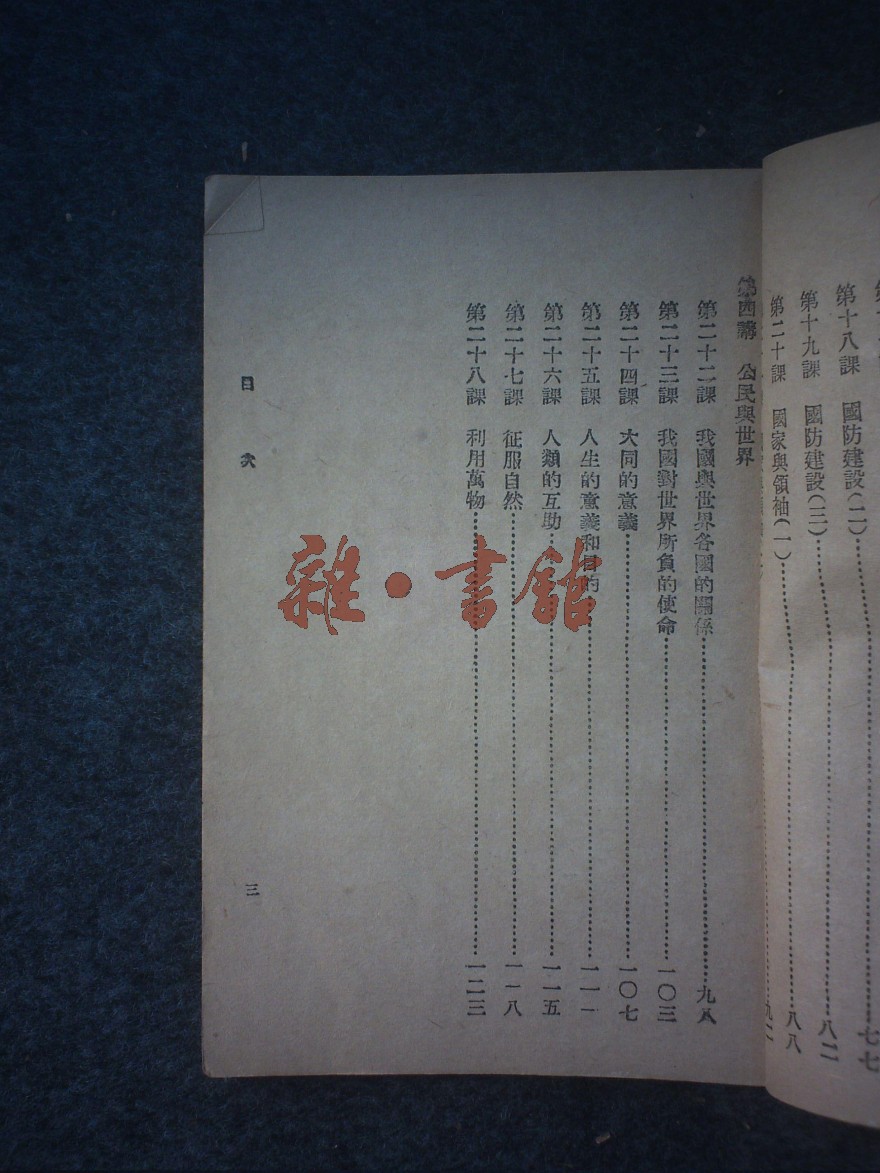 第十八課　國防建設(二)……七七
第十九課　國防建設(三)……八二
第二十課　國家與領袖(一)……八八
九二
第四講　公民與世界
第二十二課　我國與世界各國的關係……九八
第二十三課　我國對世界所負的使命……一〇三
第二十四課　大同的意義……一〇七
第二十五課　人生的意義和目的……一一一
第二十六課　人類的互助……一一五
第二十七課　征服自然……一一八
第二十八課　利用萬物……一二三
目次
三
雜·書舘